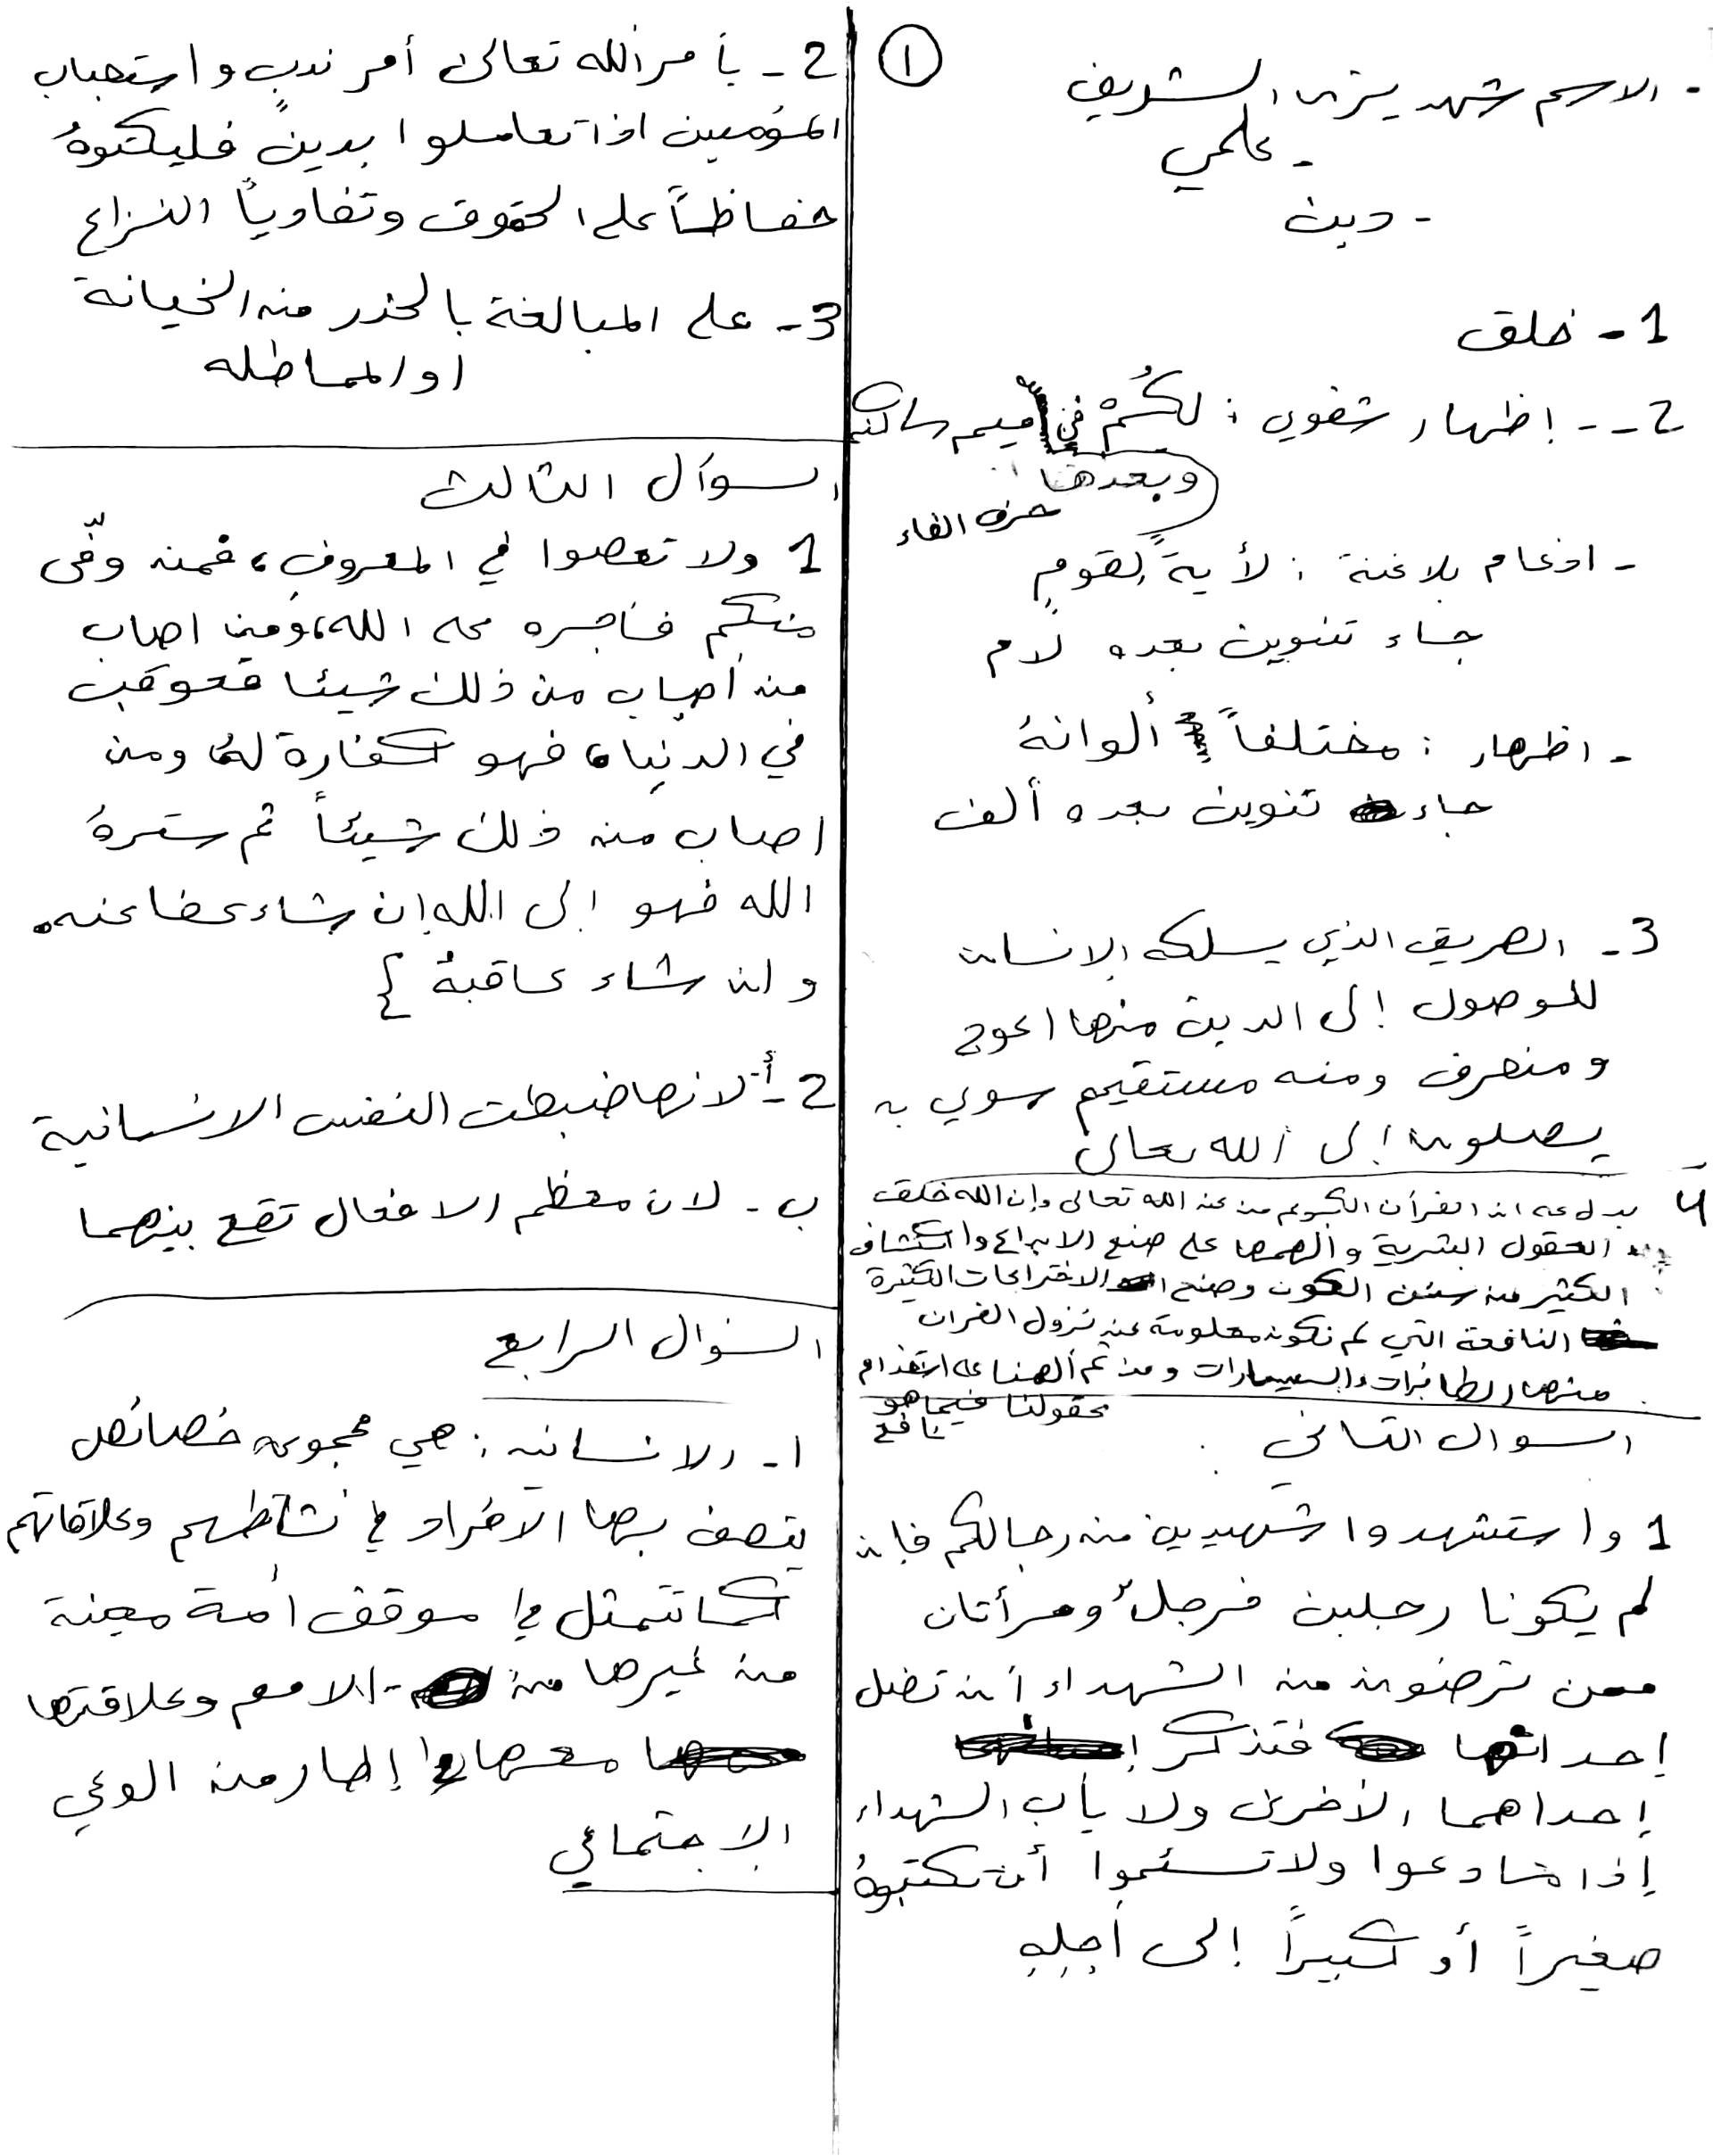 ①
- الاسم شهد يزن الشريف
- علمي
- دين
1 - خلق
2 - - إظهار شفوي : لكُمْ فيها ميم ساكنه
وبعدها
حرف الفاء
- ادغام بلا غنة : لأيةً لقومٍ
جاء تنوين بعده لام
- اظهار : مختلفاً ألوانهُ
جاء تنوين بعده ألف
3 - الطريق الذي يسلكه الانسان
للوصول إلى الدين منها اعوج
ومنحرف ومنه مستقيم سوي به
يصلون إلى الله تعالى
4 يدل على ان القرأن الكريم من عند الله تعالى وإن الله خلق
العقول البشرية وألهمها على صنع الابداع واكتشاف
الكثير من سنن الكون وصنع الاختراعات الكثيرة
النافعة التي لم تكون معلومة عند نزول القران
منها الطائرات والسيارات ومن ثم ألهمنا على استخدام
عقولنا فيما هو
نافع
السوال الثاني
1 واستشهدوا شهيدين من رجالكم فإن
لم يكونا رجلين فرجلٌ ومرأتان
ممن ترضون من الشهداء أن تضل
إحداهما فتذكر
إحداهما الأخرى ولا يأب الشهداء
إذا ما دعوا ولا تسئموا أن تكتبوهُ
صغيراً أو كبيراً إلى أجلِهِ
2 - يأمر الله تعالى أمر ندبٍ واستحباب
المؤمنين اذا تعاملوا بدينٍ فليكتبوهُ
حفاظاً على الحقوق وتفادياً النزاع
3 - على المبالغة بالحذر من الخيانة
او المماطله
السوأل الثالث
1 ولا تعصوا في المعروف، فمن وفّى
منكم فاجره على الله، ومن اصاب
من أصاب من ذلك شيئا فعوقب
في الدنيا، فهو كفارة لهُ، ومن
اصاب من ذلك شيئاً ثم سترهُ
الله فهو إلى الله إن شاء عفا عنه.
وان شاء عاقبهُ }
2 - أ - لانها ضبطت النفس الانسانية
ب - لان معظم الافعال تقع بينهما
السؤال الرابع
1 - الانسانيه : هي مجموعه خصائص
يتصف بها الأفراد في نشاطهم وعلاقاتهم
كما تتمثل في موقف أمة معينة
من غيرها من الامم وعلاقتها
معها في إطار من الوعي
الاجتماعي